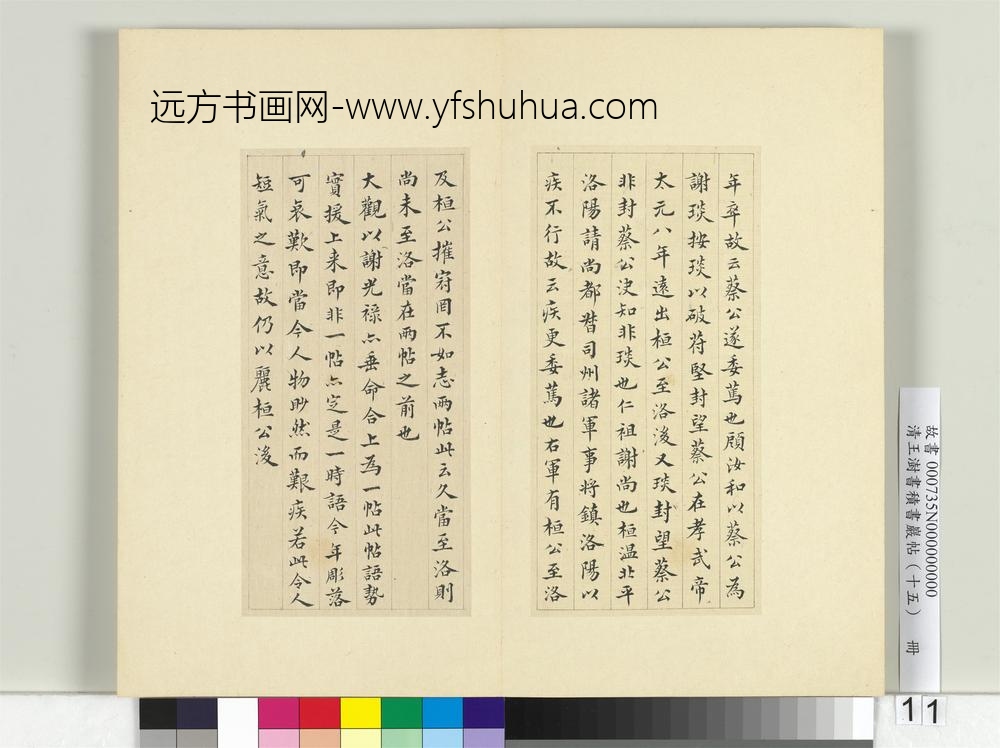 远方书画网-www.yfshuhua.com
年卒故云蔡公遂委蔫也顧汝和以蔡公為
謝琰按琰以破苻堅封望蔡公在孝武帝
太元八年遠出桓公至洛後又琰封望蔡公
非封蔡公決知非琰也仁祖謝尚也桓温北平
洛陽請尚都督司州諸軍事將鎮洛陽以
疾不行故云疾更委蔫也右軍有桓公至洛
及桓公摧宼罔不如志兩帖此云久當至洛則
尚未至洛當在兩帖之前也
大觀以謝光祿亦垂命合上為一帖此帖語勢
實援上来即非一帖亦定是一時語今年彫落
可哀歎即當今人物眇然而艱疾若此令人
短氣之意故仍以麗桓公後
故書 000735N000000000
清王澍書積書巖帖（十五） 冊
11